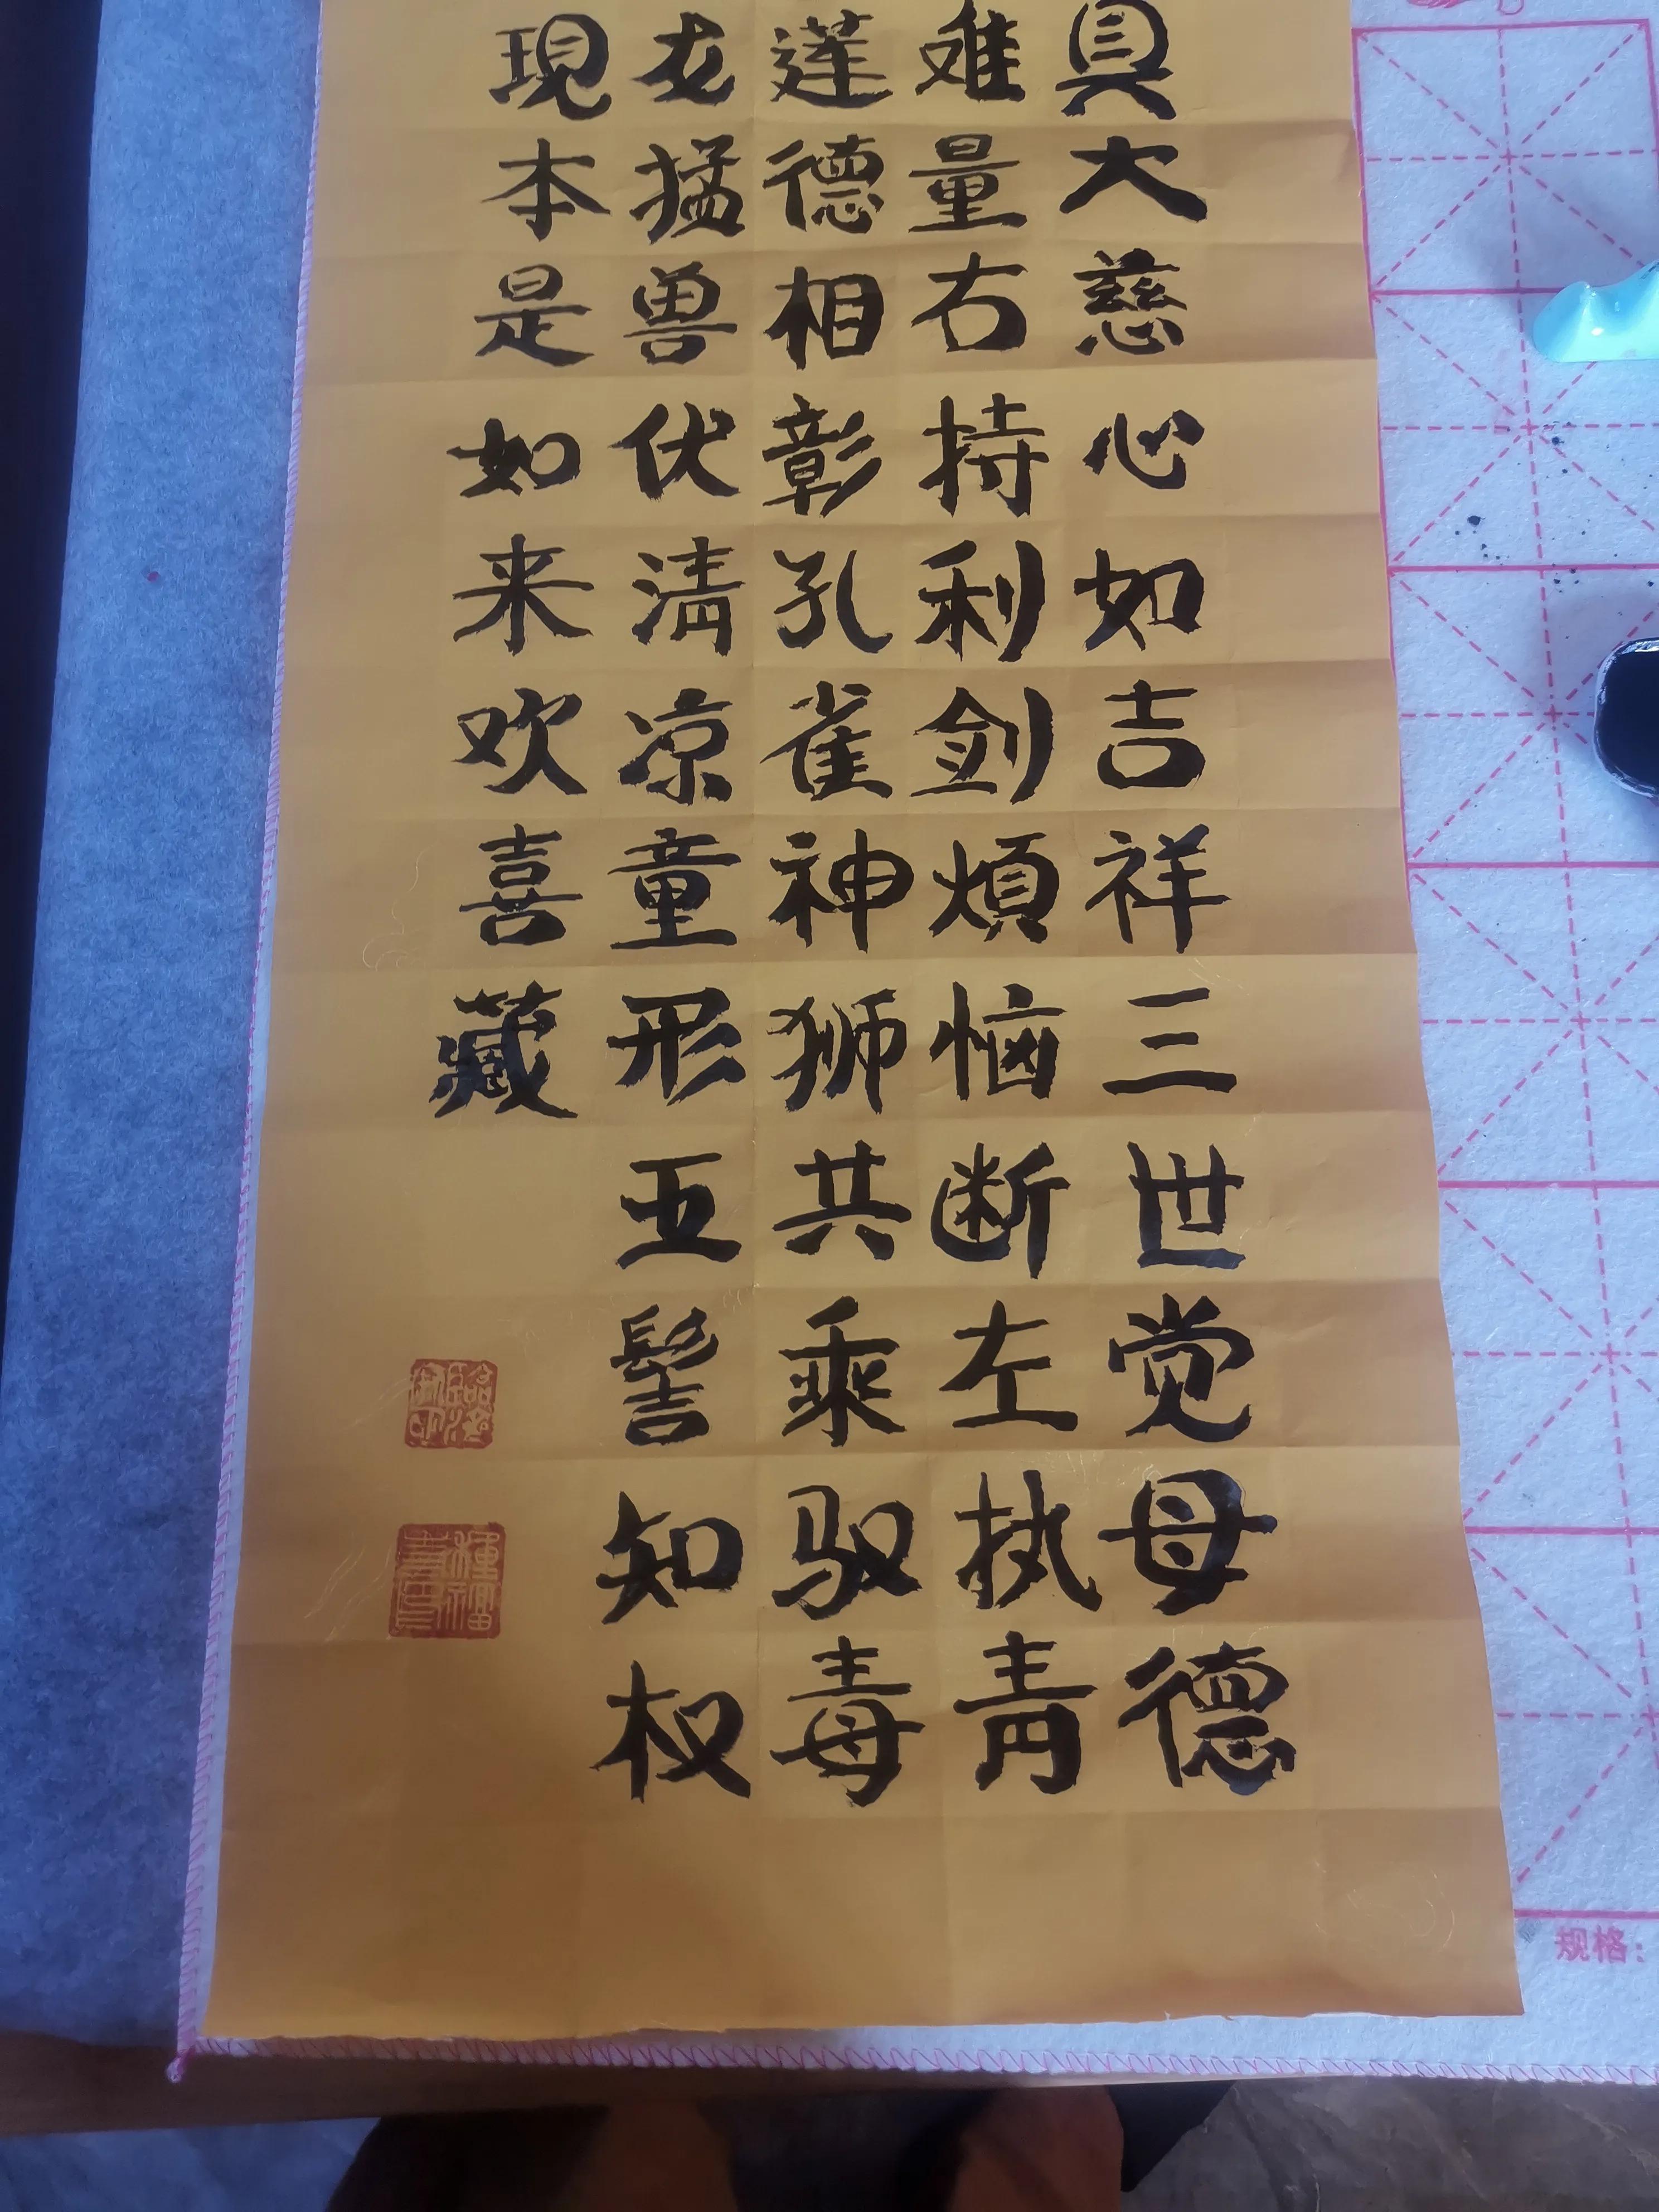 具大慈心如吉祥三世觉母德
难量右持利剑烦恼断左执青
莲德相彰孔雀神狮共乘驭毒
龙猛兽伏清凉童形五髻知权
現本是如来欢喜藏
规格：